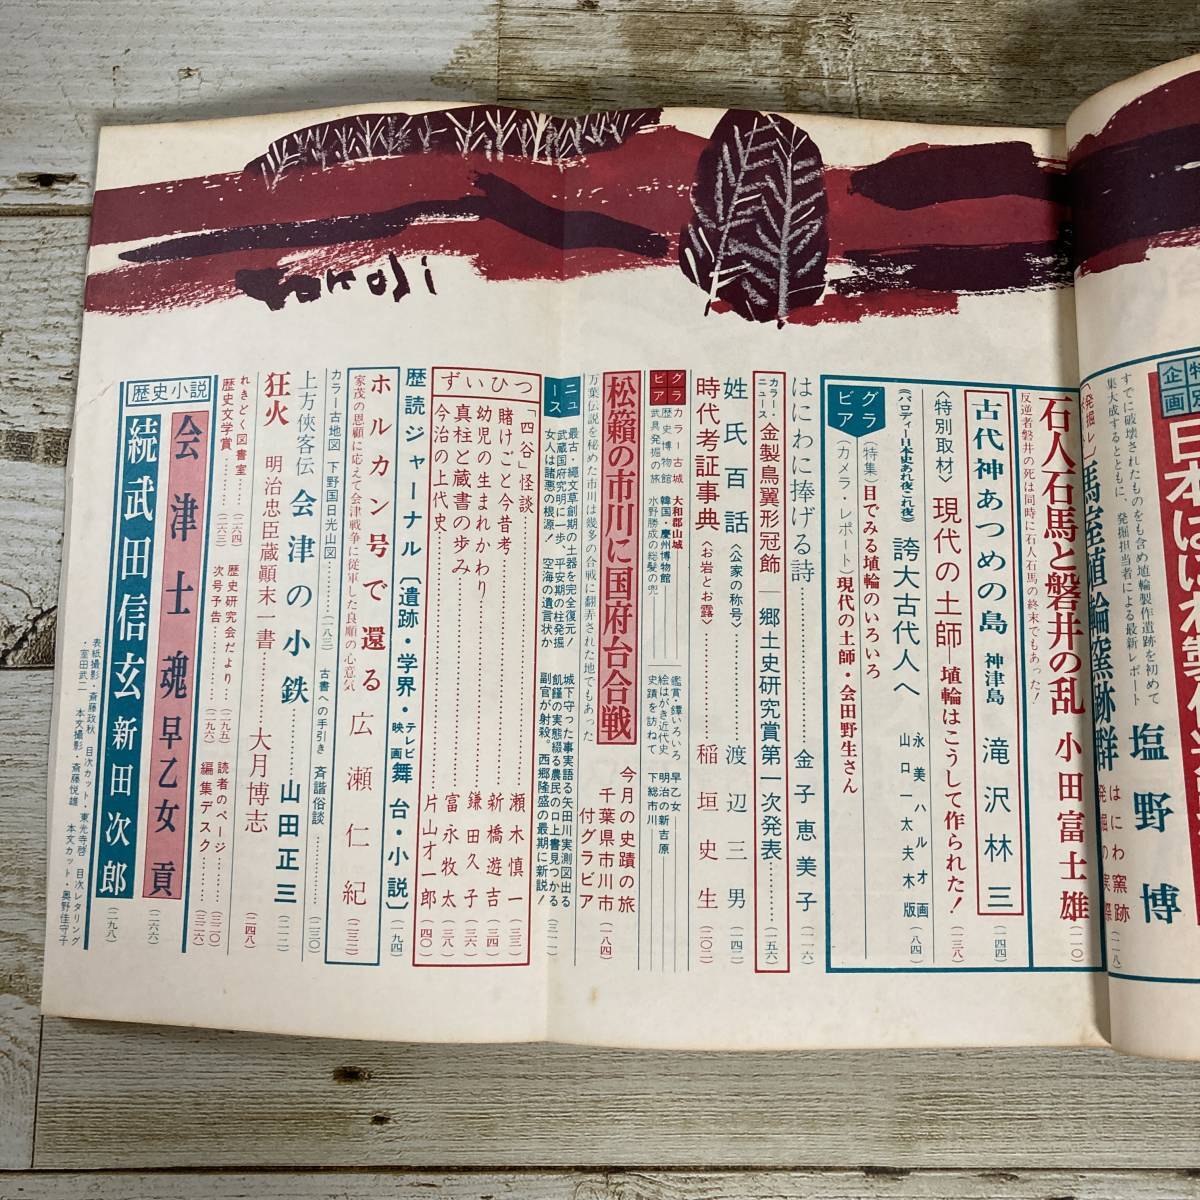 特別企画
日本はにわ製作
すでに破壊されたものをも含め埴輪製作遺跡を初めて
集大成するとともに、発掘担当者による最新レポート
塩野博
馬室埴輪窯跡群 はにわ窯跡発掘の実際(一一八)
石人石馬と磐井の乱 小田富士雄(一一〇)
反逆者磐井の死は同時に石人石馬の終末でもあった!
古代神あつめの島 神津島 滝沢林三(一四四)
〈特別取材〉現代の土師 埴輪はこうして作られた!(一三八)
〈パロディー日本史あれ夜これ夜〉 誇大古代人へ 永美ハルオ画 山口一太夫木版(八四)
グラビア
(特集)目でみる埴輪のいろいろ
(カメラ・レポート)現代の土師・会田野生さん
はにわに捧げる詩 金子恵美子(一一六)
カラー・ニュース・金製鳥翼形冠飾 郷土史研究賞第一次発表(一五六)
姓氏百話〈公家の称号〉 渡辺三男(一四二)
時代考証事典〈お岩とお露〉 稲垣史生(二〇二)
グラビア
カラー古城 大和郡山城 鑑賞鐔いろいろ 早乙女貢
歴史博物館 韓国・慶州博物館 絵はがき近代史 明治の新吉原
武具発掘の旅 水野勝成の総髪の兜 史蹟を訪ねて 下総市川
松籟の市川に国府台合戦 今月の史蹟の旅 千葉県市川市 付グラビア(一八四)
万葉伝説を秘めた市川は幾多の合戦に翻弄された地でもあった
ニュース
最古・縄文草創期の土器を完全復元! 城下守った事実語る矢田川実測図出る
武蔵国府究明に一歩、平安期の柱発掘 飢饉の実態綴る農民の口上書見つかる
女人は諸悪の根源!空海の遺言状か 副官が射殺。西郷隆盛の最期に新説!(三二一)
ずいひつ
「四谷」怪談 瀬木慎一(三三)
賭けごと今昔考 新橋遊吉(三四)
幼児の生まれかわり 鎌田久子(三六)
真柱と蔵書の歩み 富永牧太(三八)
今治の上代史 片山才一郎(四〇)
歴読ジャーナル〔遺跡・学界・テレビ・映画・舞台・小説〕(一九四)
ホルカン号で還る 広瀬仁紀(二三二)
家茂の恩顧に応えて会津戦争に従軍した良順の心意気
カラー古地図 下野国日光山図(一八三) 古書への手引き 斉諧俗談(一三〇)
上方俠客伝 会津の小鉄 山田正三(二一二)
狂火 明治忠臣蔵顚末一書 大月博志(二四八)
れきどく図書室(二六四) 歴史研究会だより(二九五) 読者のページ(三二〇)
歴史文学賞(二六三) 次号予告(二九六) 編集デスク(三二六)
歴史小説
会津士魂 早乙女貢(二六六)
続武田信玄 新田次郎(二九八)
表紙撮影・斎藤政秋 目次カット・東光寺啓 目次レタリング
・室田武二 本文撮影・斎藤悦雄 本文カット・奥野佳守子